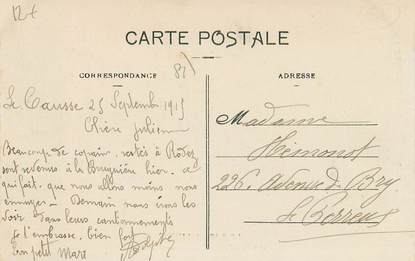 CARTE POSTALE
CORRESPONDANCE
ADRESSE
Le Causse 25 Septembre 1915
Chère Julienne
Beaucoup de copains restés à Rodez
sont revenus à la Bruyère hier. ce
qui fait que nous allons moins nous
ennuyer - Demain nous irons les
voir dans leurs cantonnements
Je t'embrasse bien fort
Ton petit Marc
Madame
Hémonot
226 Avenue d Bry
Le Perreux